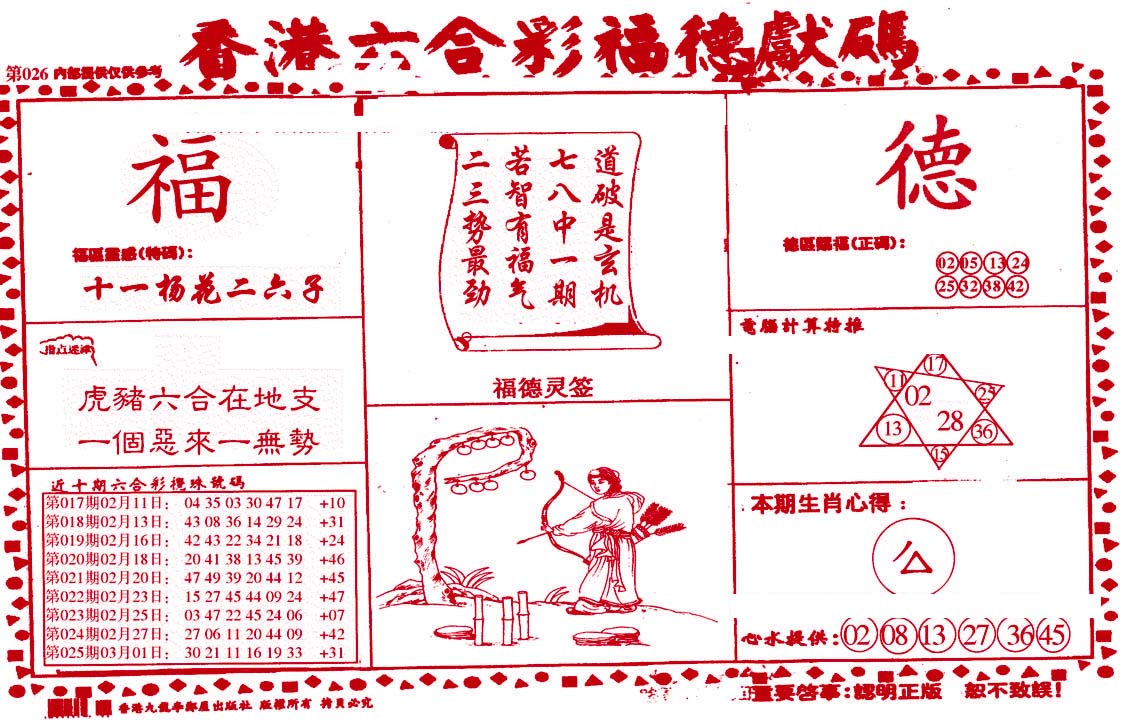 香港六合彩福德獻碼
第026 內部提供仅供參考
福
福區靈感(特碼):
十一杨花二六子
指点迷津
虎豬六合在地支
一個惡來一無勢
近十期六合彩攪珠號碼
第017期02月11日: 04 35 03 30 47 17 +10
第018期02月13日: 43 08 36 14 29 24 +31
第019期02月16日: 42 43 22 34 21 18 +24
第020期02月18日: 20 41 38 13 45 39 +46
第021期02月20日: 47 49 39 20 44 12 +45
第022期02月23日: 15 27 45 44 09 24 +47
第023期02月25日: 03 47 22 45 24 06 +07
第024期02月27日: 27 06 11 20 44 09 +42
第025期03月01日: 30 21 11 16 19 33 +31
道破是玄机
七八中一期
若智有福气
二三势最劲
福德灵签
德
德區賜福(正碼):
02 05 13 24
25 32 38 42
電腦計算特推
17
11 02 25
13 28 36
15
本期生肖心得:
心水提供: 02 08 13 27 36 45
重要啓事:認明正版 恕不致誤!
版權所有